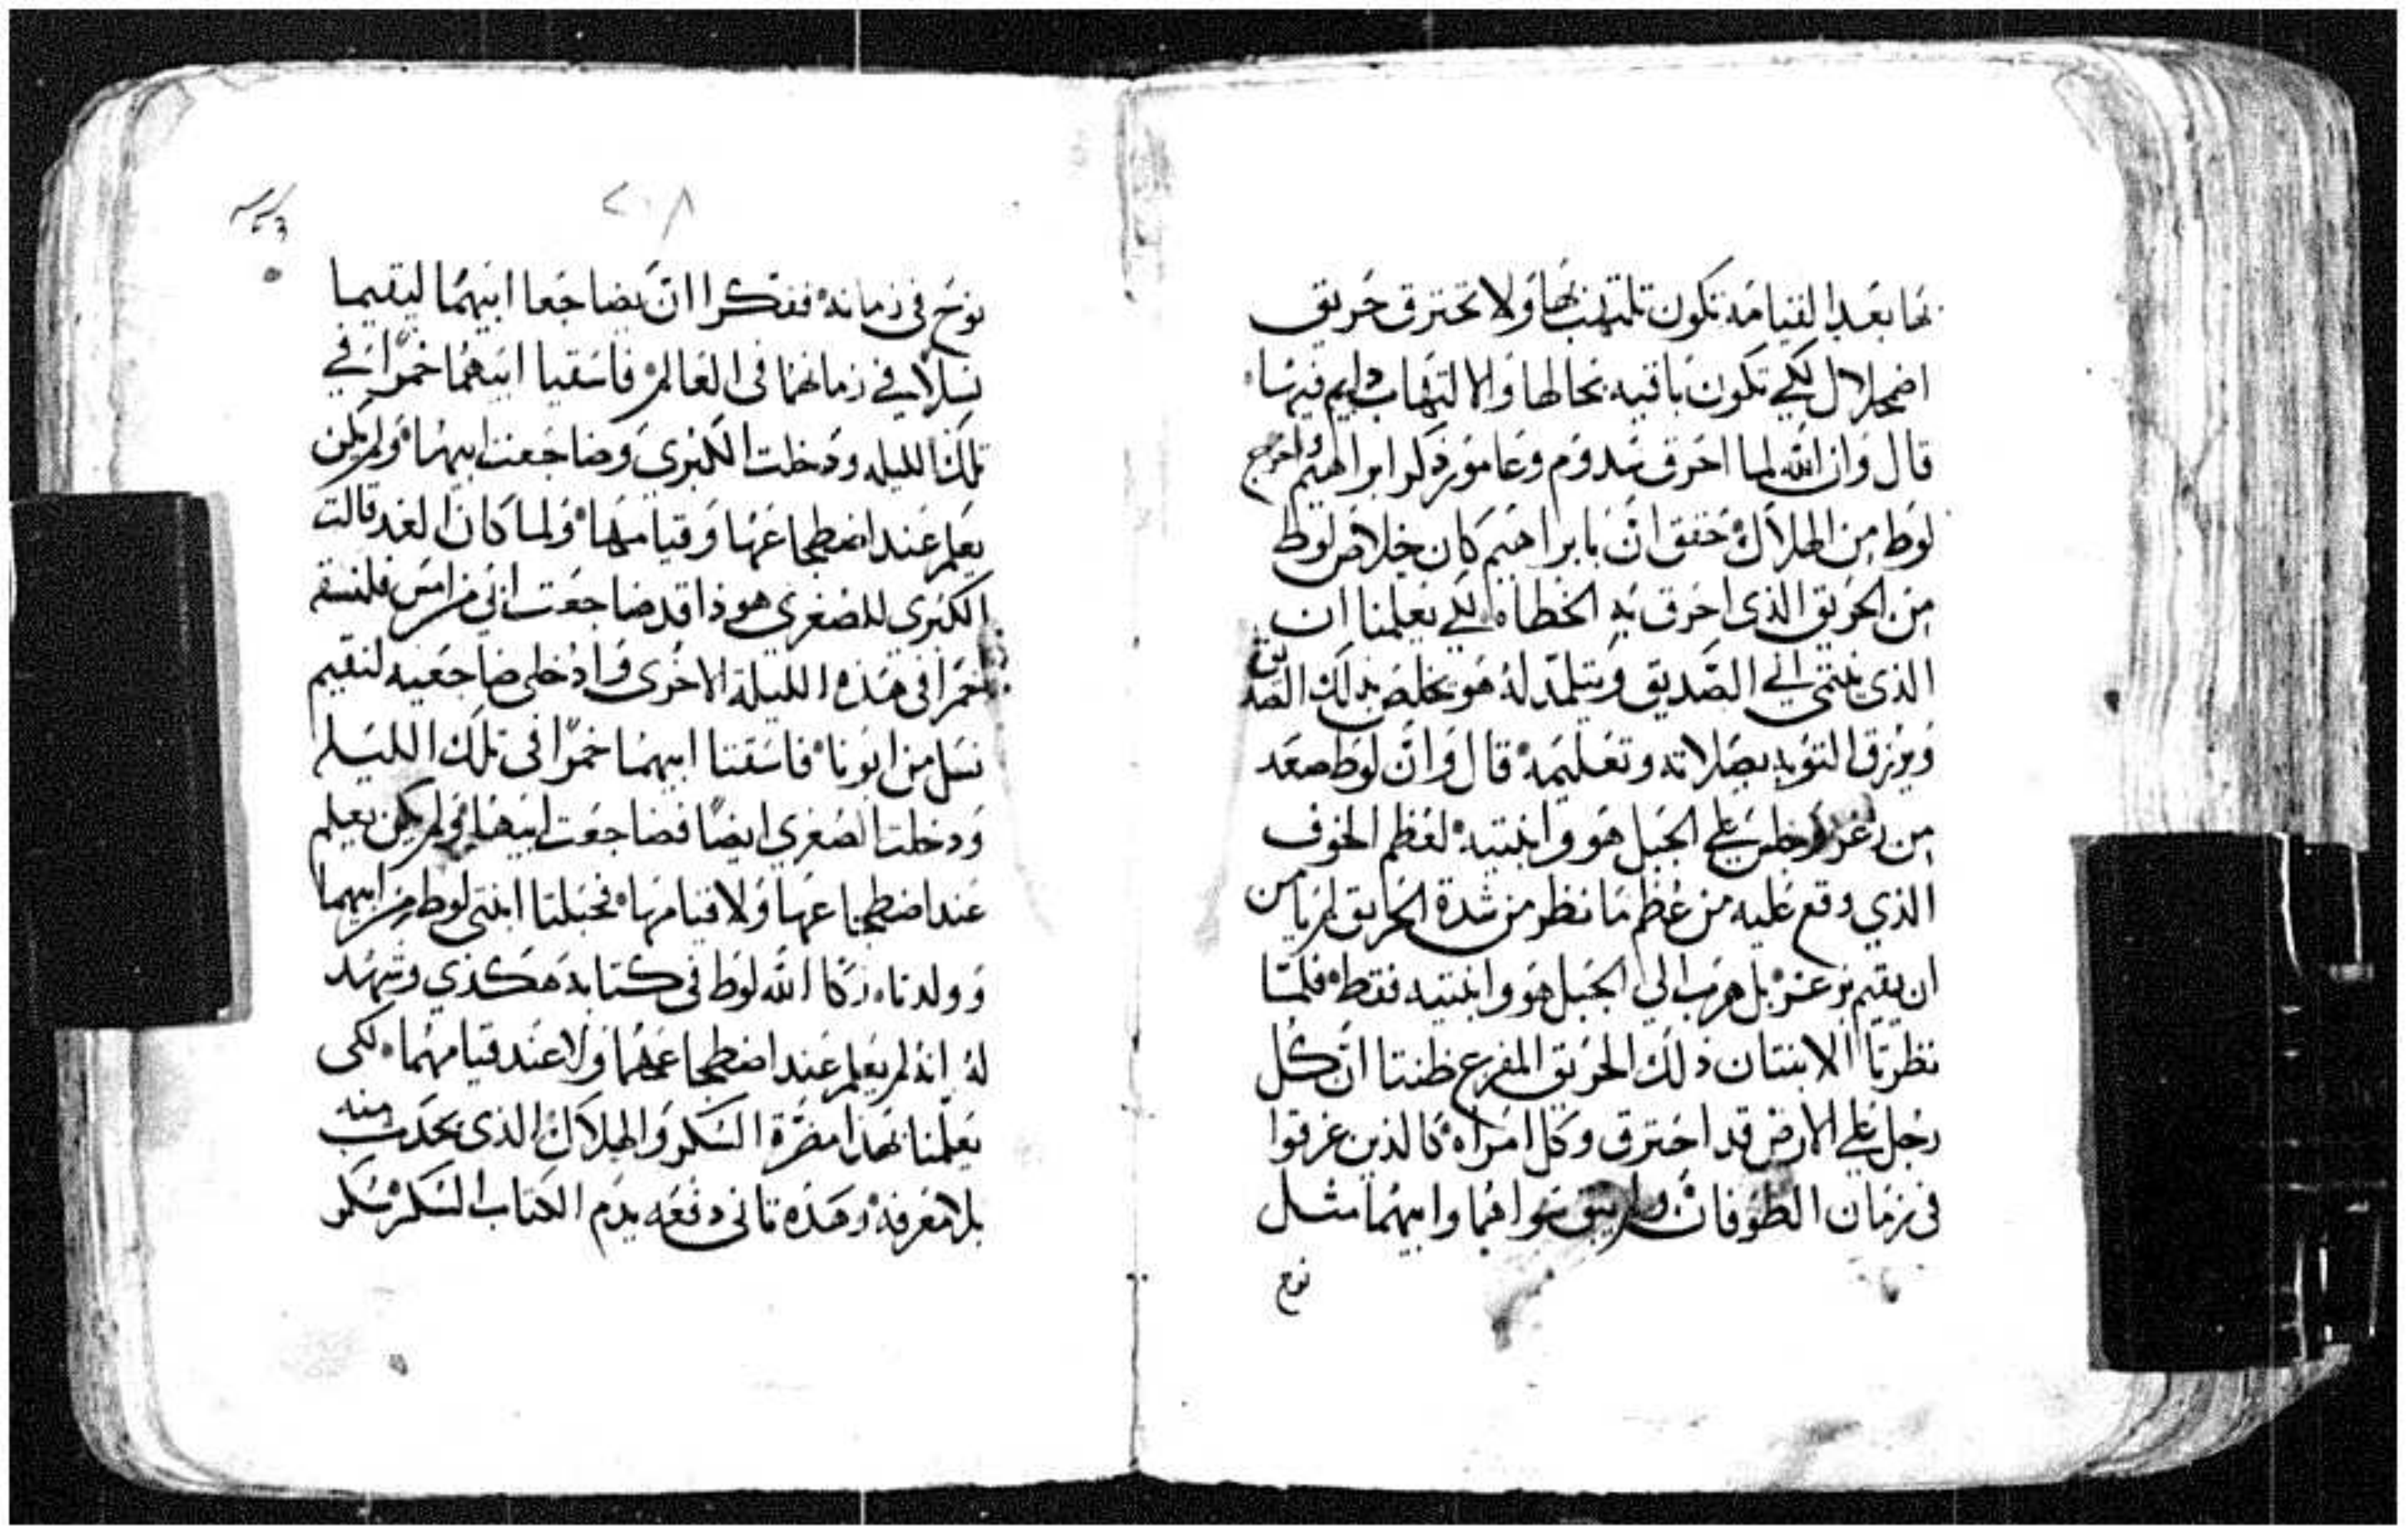 بها بعد القيامه تكون تلتهب بها ولا تحترق حريق
اضمحلال لكي تكون باقيه بحالها والالتهاب دايم فيها
قال وان الله لما احرق سدوم وعامور ذكر ابراهيم واخرج
لوط من الهلاك حقق ان بابراهيم كان خلاص لوط
من الحريق الذي احرق به الخطاه لكي يعلمنا ان
الذي ينتمي الي الصديق ويتلمد له هو يخلص بذلك الصديق
ويرزق التوبه بصلاته وتعليمه قال وان لوط صعد
من زغر وجلس علي الجبل هو وابنتيه لعظم الخوف
الذي وقع عليه من عظم ما نظر من شدة الحريق لم يامن
ان يقيم بزغر بل هرب الي الجبل هو وابنتيه فقط فلما
نظرتا الابنتان ذلك الحريق المفزع ظنتا ان كل
رجل علي الارض قد احترق وكل امراه كالذين غرقوا
في زمان الطوفان ولم يبق سواهما وابيهما مثل
نوح
٢٠٨
نوح في زمانه ففكرا ان يضاجعا ابيهما ليقيما
نسلا في زمانهما في العالم فاسقيا ابيهما خمرا في
تلك الليله ودخلت الكبرى وضاجعت ابيها ولم يكن
يعلم عند اضطجاعها وقيامها ولما كان الغد قالت
الكبرى للصغرى هوذا قد ضاجعت ابي من امس فلنسقه
خمرا في هذه الليلة الاخرى وادخلي ضاجعيه لنقيم
نسل من ابونا فاسقتا ابيهما خمرا في تلك الليله
ودخلت الصغرى ايضا فضاجعت ابيها ولم يكن يعلم
عند اضطجاعها ولا قيامها فحبلتا ابنتي لوط من ابيهما
وولدتا زكا الله لوط في كتابه هكذي وشهد
له انه لم يعلم عند اضطجاعهما ولا عند قيامهما لكي
يعلمنا بهذا مضرة السكر والهلاك الذي يحدث منه
بلا معرفه وهذه تاني دفعه يذم الكتاب السكر سكر